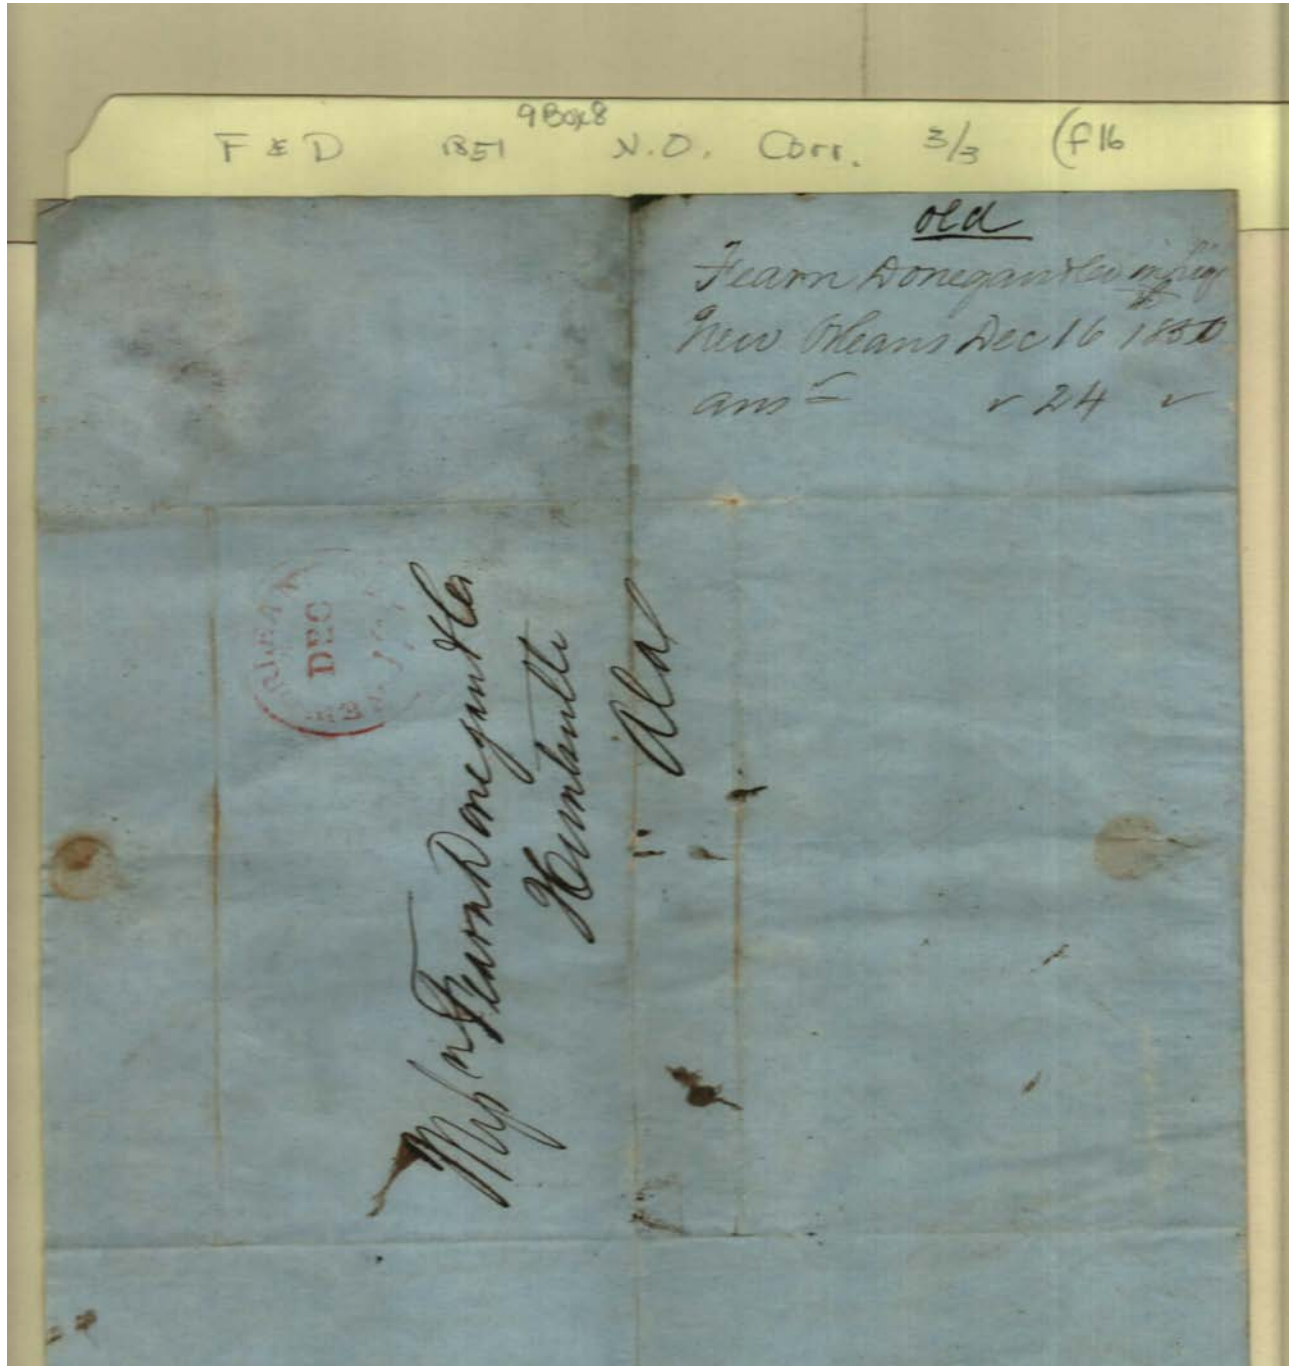 9 Box 8
F & D 1851 N.O. Corr. 3/3 (f16
old
Fearn Donegan & Co
New Orleans Dec 16 1850
ansd 24
DEC
Messrs Fearn Donegan & Co
Huntsville
Ala